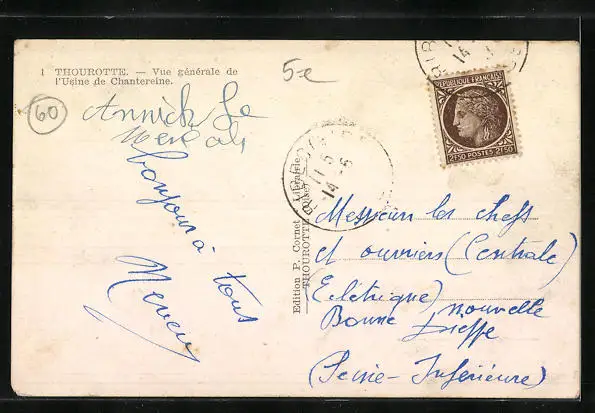 1 THOUROTTE. — Vue générale de
l'Usine de Chantereine.
5-e
60
Annick Le
bonjour à tous
Edition P. Cornet - Librairie
THOUROTTE (Oise)
RIBECOURT
11 5
14-6
REPUBLIQUE FRANÇAISE
2F50 POSTES 2F50
Messieurs les chefs
et ouvriers (Centrale
Eléctrique) nouvelle
Bonne
Dieppe
(Seine-Inférieure)